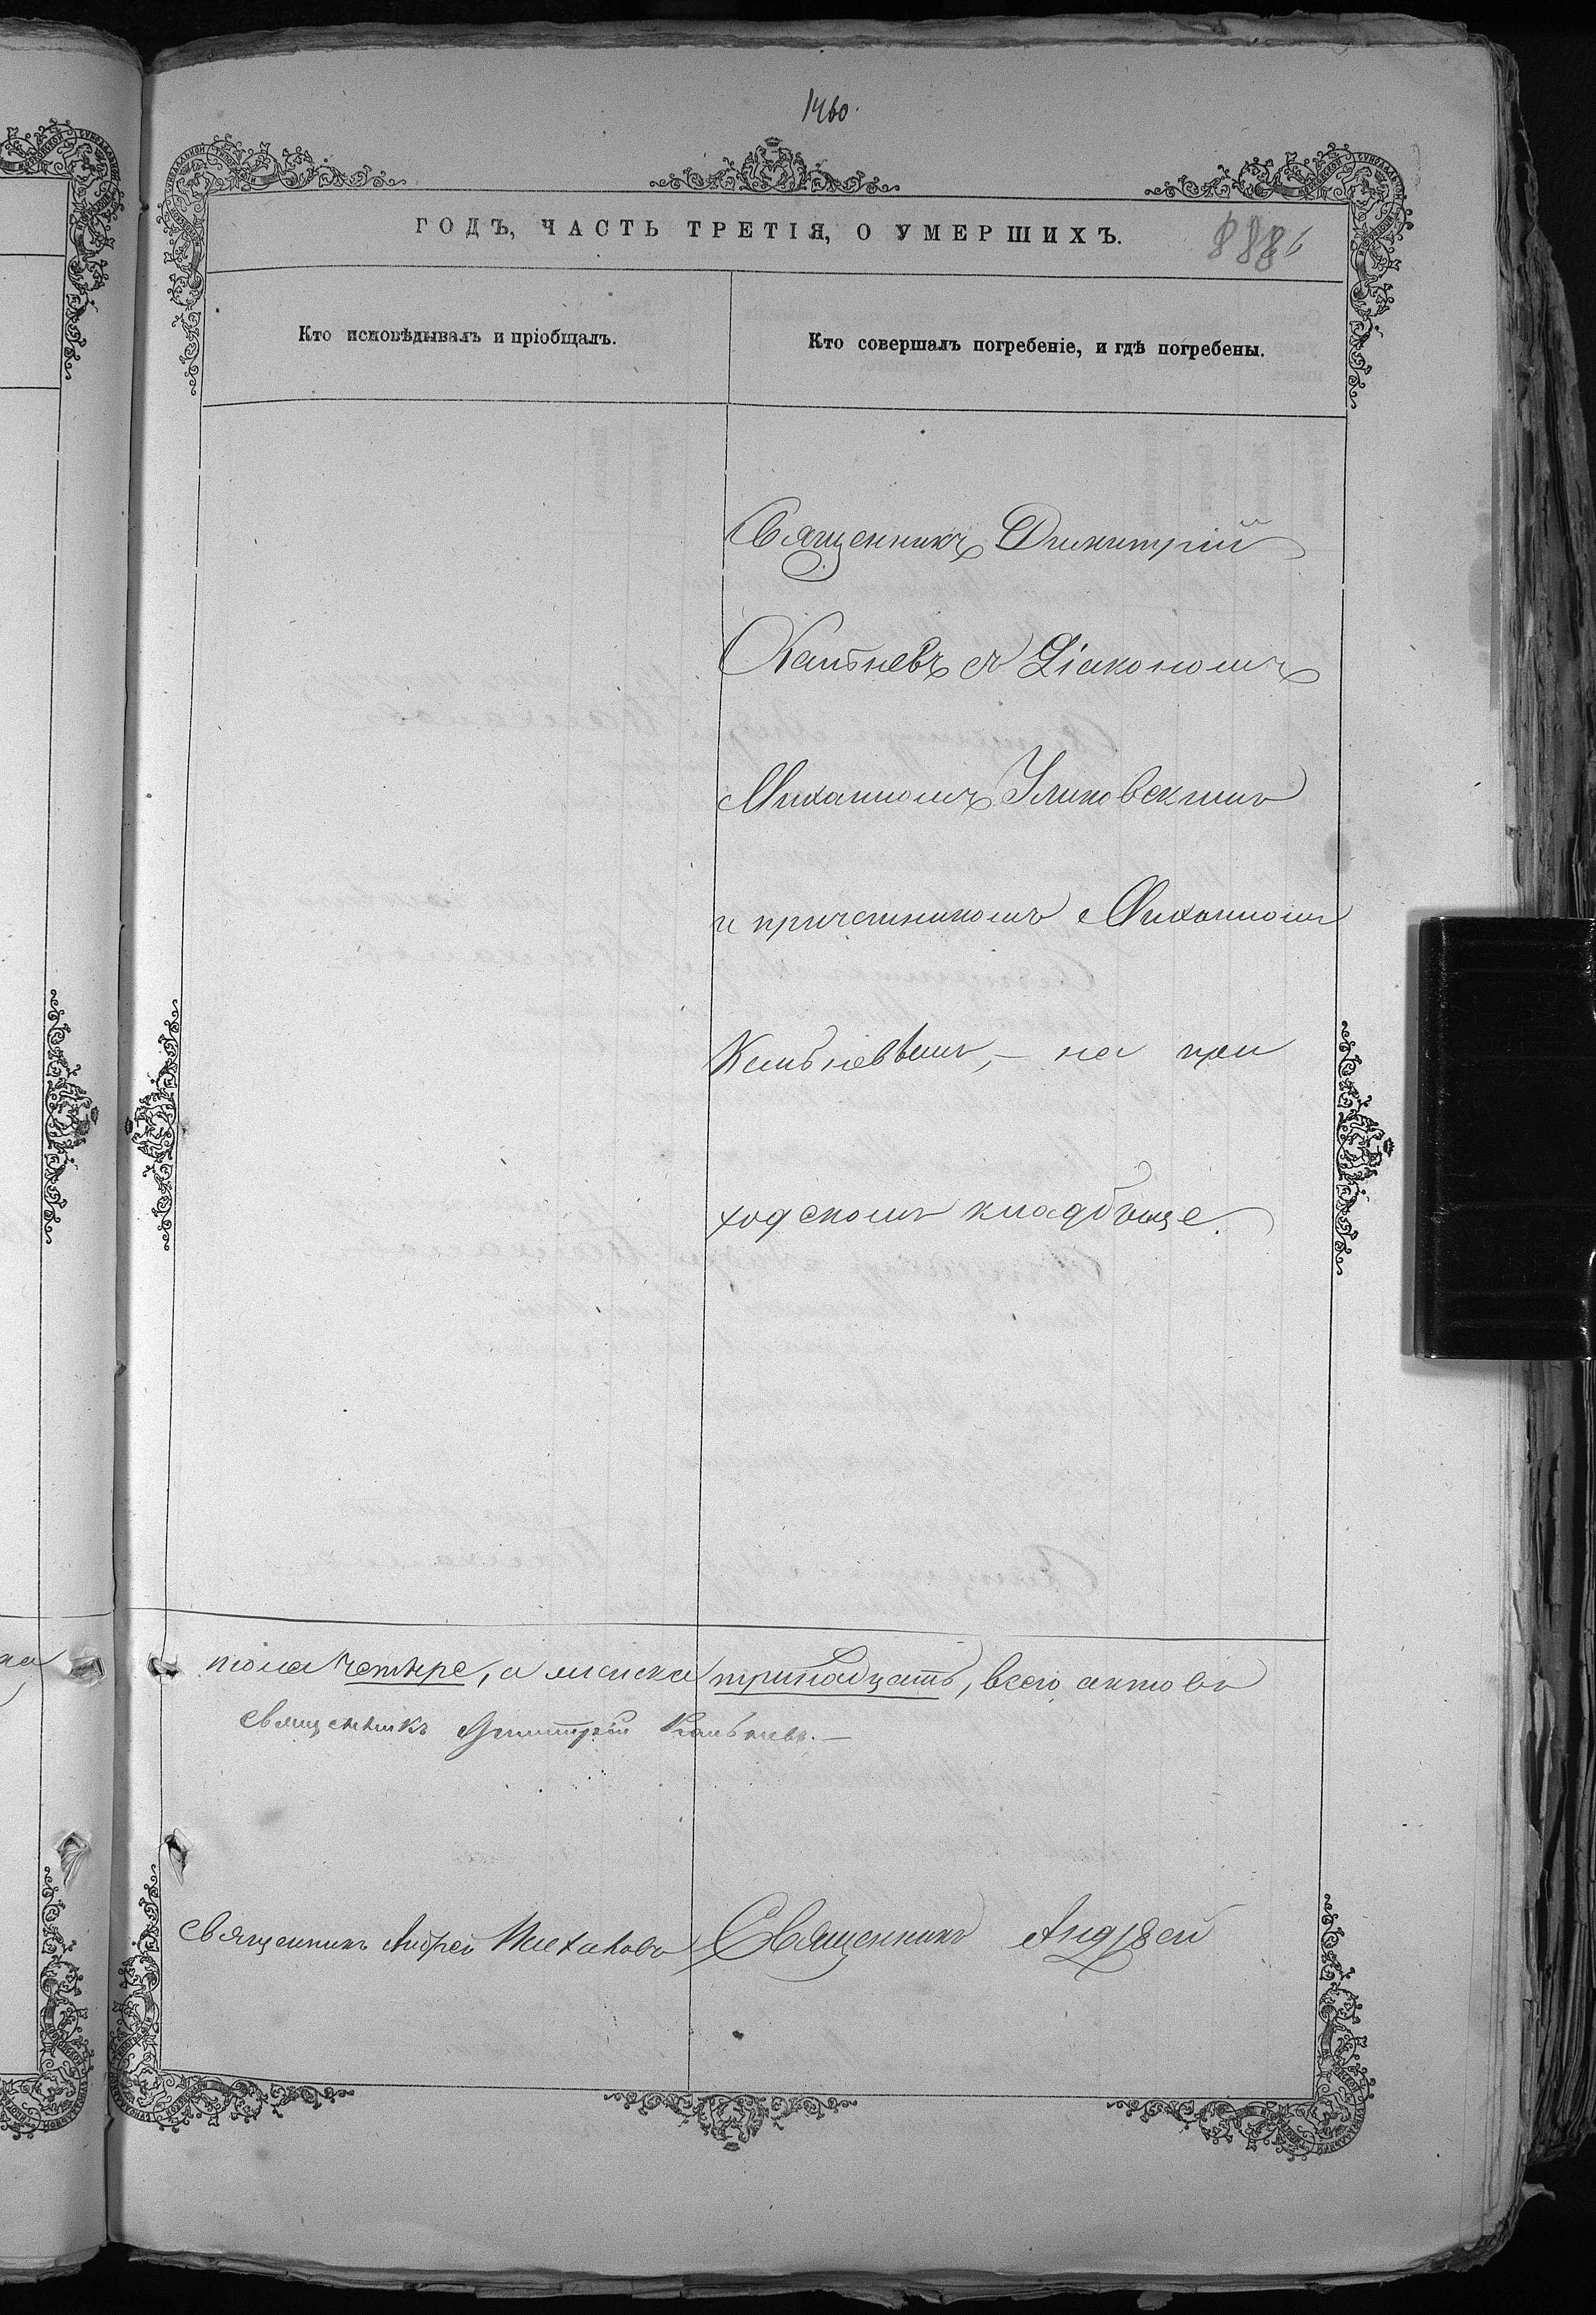 1460.
ГОДЪ, ЧАСТЬ ТРЕТІЯ, О УМЕРШИХЪ.
888
Кто исповѣдывалъ и пріобщалъ.
Кто совершалъ погребеніе, и гдѣ погребены.
Священникъ Димитрій
Кальневъ съ Діакономъ
Михаиломъ
и причетникомъ Михаиломъ
Кальневымъ, – на при
ходскомъ кладбище.
пола четыре, а женска тринадцать, всего актовъ
Священникъ Димитрій Кальневъ. –
Священникъ Андрей
Священникъ Андрей